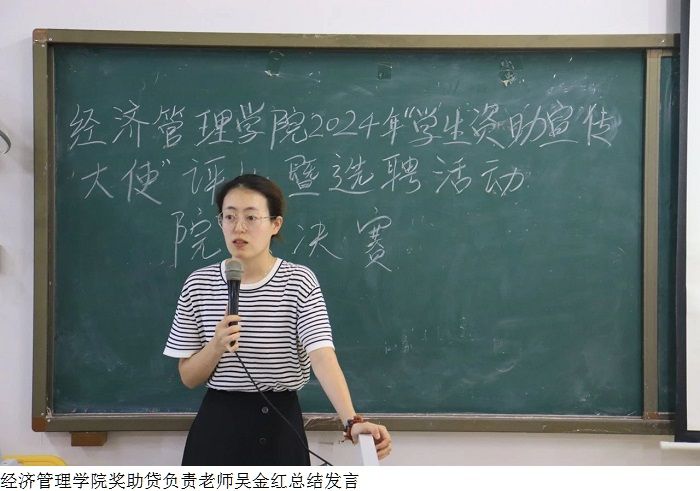 经济管理学院2024年“学生资助宣传
大使”评 暨选聘活动
院 决赛
经济管理学院奖助贷负责老师吴金红总结发言